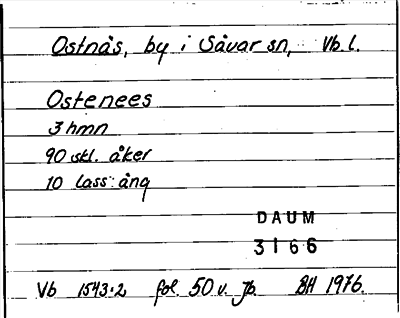 Ostnäs, by i Sävar sn, Vb. l.
Ostenees
3 hmn
90 skl. åker
10 lass: äng
DAUM
3166
Vb 1543:2 fol. 50 v. Jb. BH 1976.